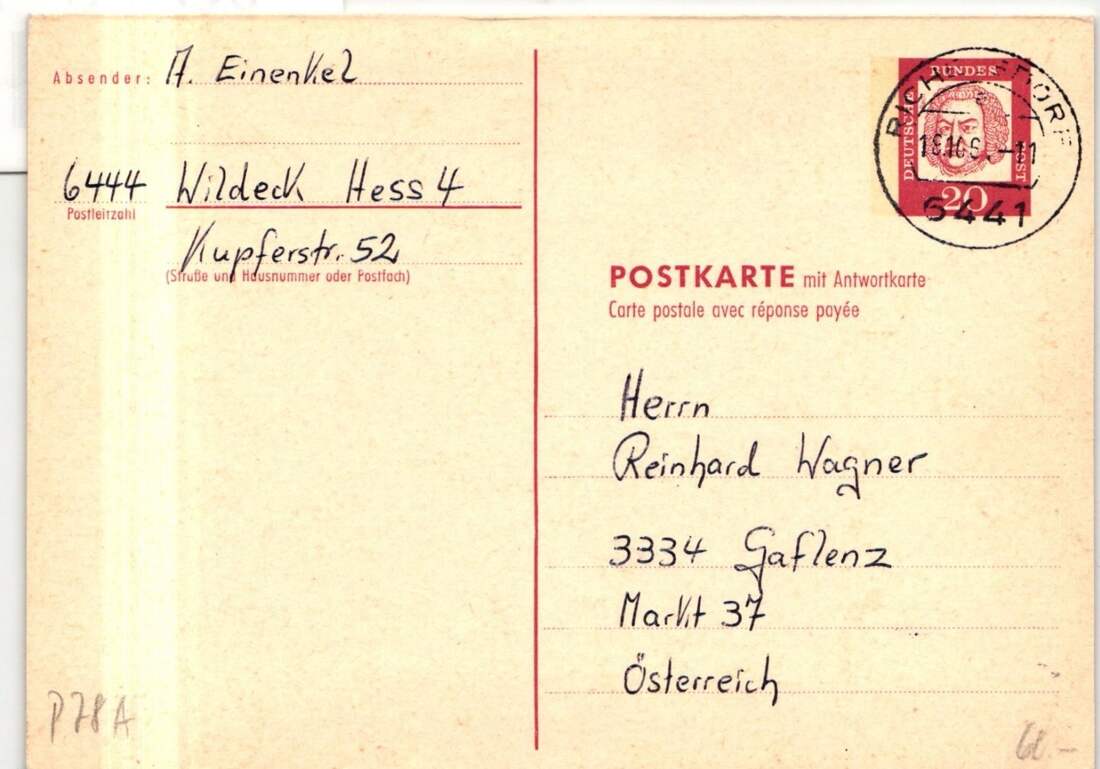 Absender: A. Einenkel
6444 Wildeck Hess 4
Postleitzahl
Kupferstr. 52
(Straße und Hausnummer oder Postfach)
DEUTSCHE BUNDES POST
20
6441
POSTKARTE mit Antwortkarte
Carte postale avec réponse payée
Herrn
Reinhard Wagner
3334 Gaflenz
Markt 37
Österreich
P78A